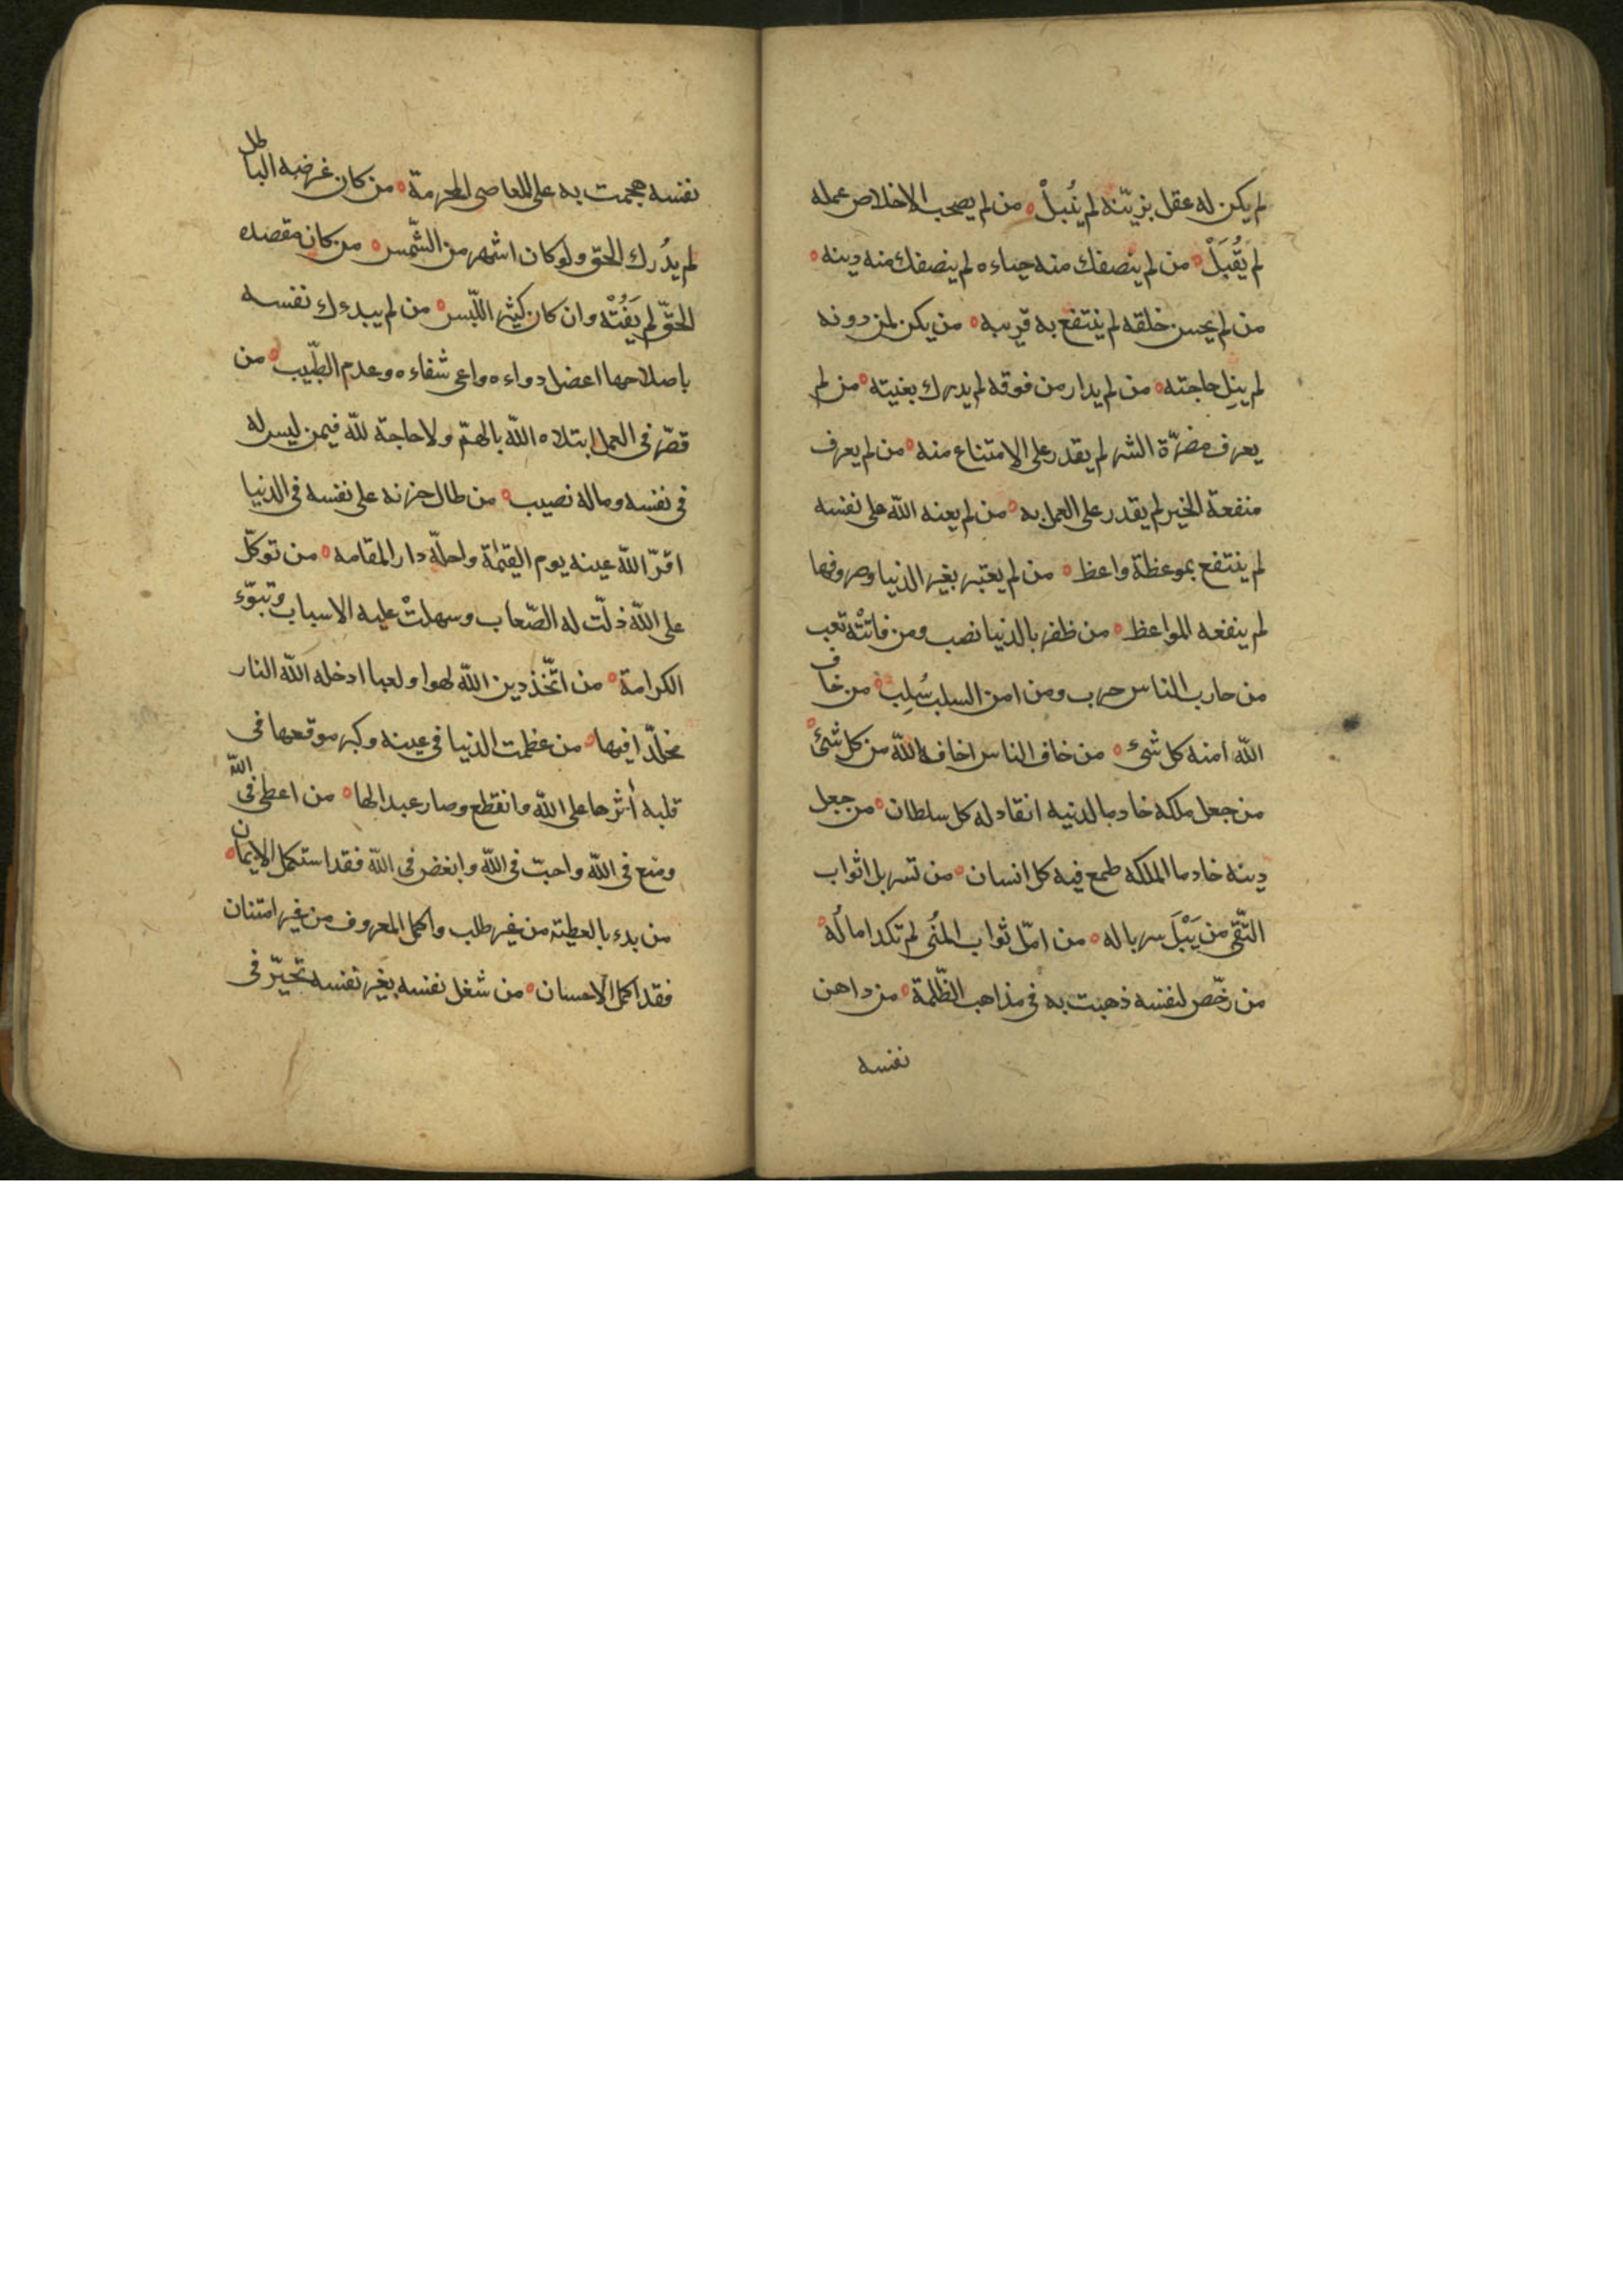 لم يكن له عقل يزيّنه لم يُنْبلْ ه من لم يصحب الاخلاص عمله
لم يُقْبَلْ ه من لم ينصفك منه حياءه لم ينصفك منه دينه ه
من لم يحسن خلقه لم ينتفع به قرينه ه من يكن لمن دونه
لم ينل حاجته ه من لم يدار من فوقه لم يدرك بغيته ه من لم
يعرف مضرّة الشر لم يقدر على الامتناع منه ه من لم يعرف
منفعة الخير لم يقدر على العمل به ه من لم يعنه اللّه على نفسه
لم ينتفع بموعظة واعظ ه من لم يعتبر بغير الدنيا وصروفها
لم ينفعه المواعظ ه من ظفر بالدنيا نصب ومن فاتتْه تعب
من حارب الناس حرب ومن امن السلب سُلِب ه من خاف
اللّه امنه كل شئ ه من خاف الناس اخافه اللّه من كل شئ ه
من جعل ملكه خادما لدينه انقاد له كل سلطان ه من جعل
دينه خادما لملكه طمع فيه كل انسان ه من تسربل اثواب
التّقى من يَبْلَ سرباله ه من امّل ثواب المُنى لم تكد امالُه ه
من رخّص لنفسه ذهبت به فى مذاهب الظّلمة ه من داهن
نفسه
نفسه هجمت به على المعاصى المحرمة ه من كان غرضه الباطل
لم يُدرك الحق ولو كان اشهر من الشّمس ه من كان مقصده
الحقّ لم يَفُتْه وان كان كثير اللّبس ه من لم يبدءك نفسه
باصلاحها اعضل دواءه واعى شفاءه وعدم الطّبيب ه من
قصّر فى العمل ابتلاه اللّه بالهمّ ولا حاجة للّه فيمن ليس له
فى نفسه وماله نصيب ه من طال حزنه على نفسه فى الدنيا
اقرّ اللّه عينه يوم القيمة واحلّه دار المقامه ه من توكّل
على اللّه ذلّت له الصّعاب وسهلتْ عليه الاسباب وتبوّء
الكرامة ه من اتّخذ دين اللّه لهوا ولعبا ادخله اللّه النار
مخلّدا فيها ه من عظمت الدنيا فى عينه وكبر موقعها فى
قلبه أثرها على اللّه وانقطع وصار عبدا لها ه من اعطى فى اللّه
ومنع فى اللّه واحبّ فى اللّه وابغض فى اللّه فقد استكمل الايمان ه
من بدء بالعطية من غير طلب واكمل المعروف من غير امتنان
فقد اكمل الاحسان ه من شغل نفسه بغير نفسه تحيّر فى